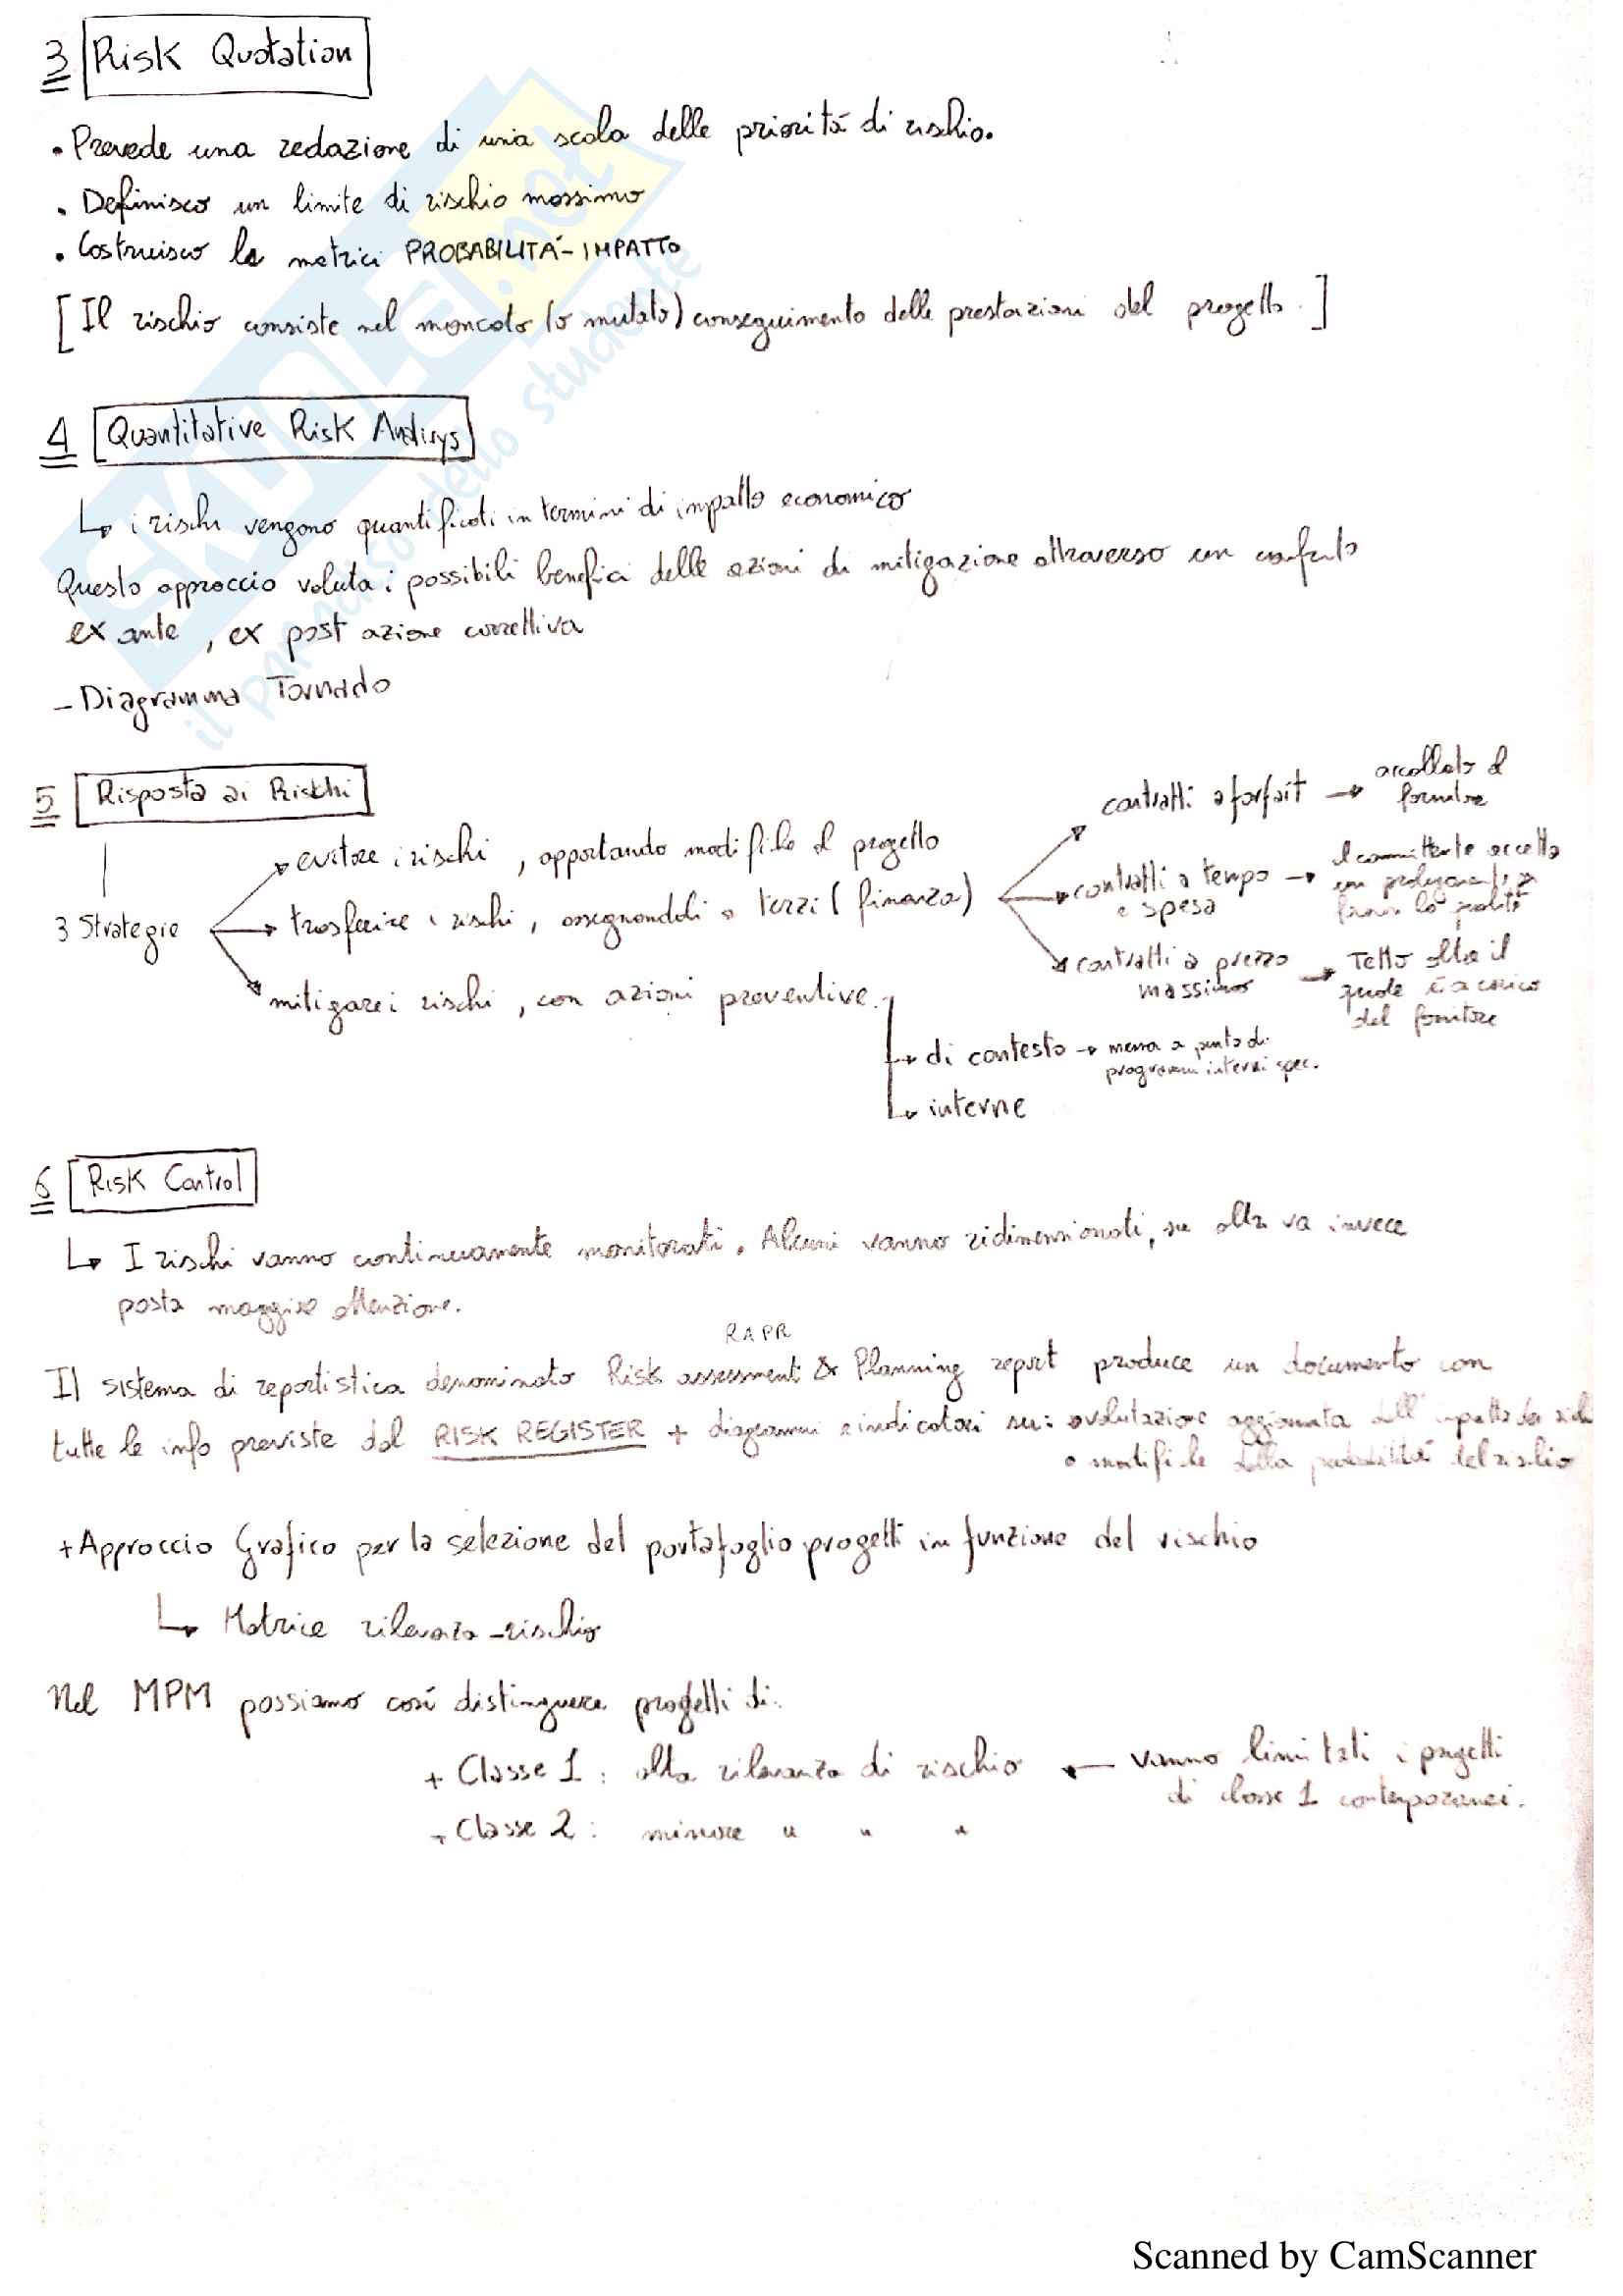 3 Risk Quotation
• Prevede una redazione di una scala delle priorità di rischio.
• Definisco un limite di rischio massimo
• Costruisco le matrici PROBABILITÀ-IMPATTO
[Il rischio consiste nel mancato (o mutato) conseguimento delle prestazioni del progetto.]
4 Quantitative Risk Analisys
↳ i rischi vengono quantificati in termini di impatto economico
Questo approccio valuta i possibili benefici delle azioni di mitigazione attraverso un confronto
ex ante, ex post azione correttiva
- Diagramma Tornado
5 Risposta ai Rischi
3 Strategie
→ evitare i rischi, apportando modifiche al progetto
→ trasferire i rischi, assegnandoli a terzi (finanza)
→ contratti a forfait → accollato al
fornitore
→ contratti a tempo → il committente accetta
e spesa
→ contratti a prezzo → Tetto oltre il
massimo quale è a carico
del fornitore
→ mitigare i rischi, con azioni preventive.
→ di contesto → messa a punto di
programmi interni spec.
→ interne
6 Risk Control
↳ I rischi vanno continuamente monitorati. Alcuni vanno ridimensionati, su altri va invece
posta maggiore attenzione.
RAPR
Il sistema di reportistica denominato Risk assessment & Planning report produce un documento con
tutte le info previste dal RISK REGISTER + diagrammi e indicatori su: • valutazione aggiornata dell'impatto dei rischi
• modifiche della probabilità del rischio
+ Approccio Grafico per la selezione del portafoglio progetti in funzione del rischio
↳ Matrice rilevanza-rischio
Nel MPM possiamo così distinguere progetti di:
+ Classe 1: alta rilevanza di rischio ← vanno limitati i progetti
di classe 1 contemporanei.
+ Classe 2: minore " " "
SKUOLA.net
il paradiso dello studente
Scanned by CamScanner